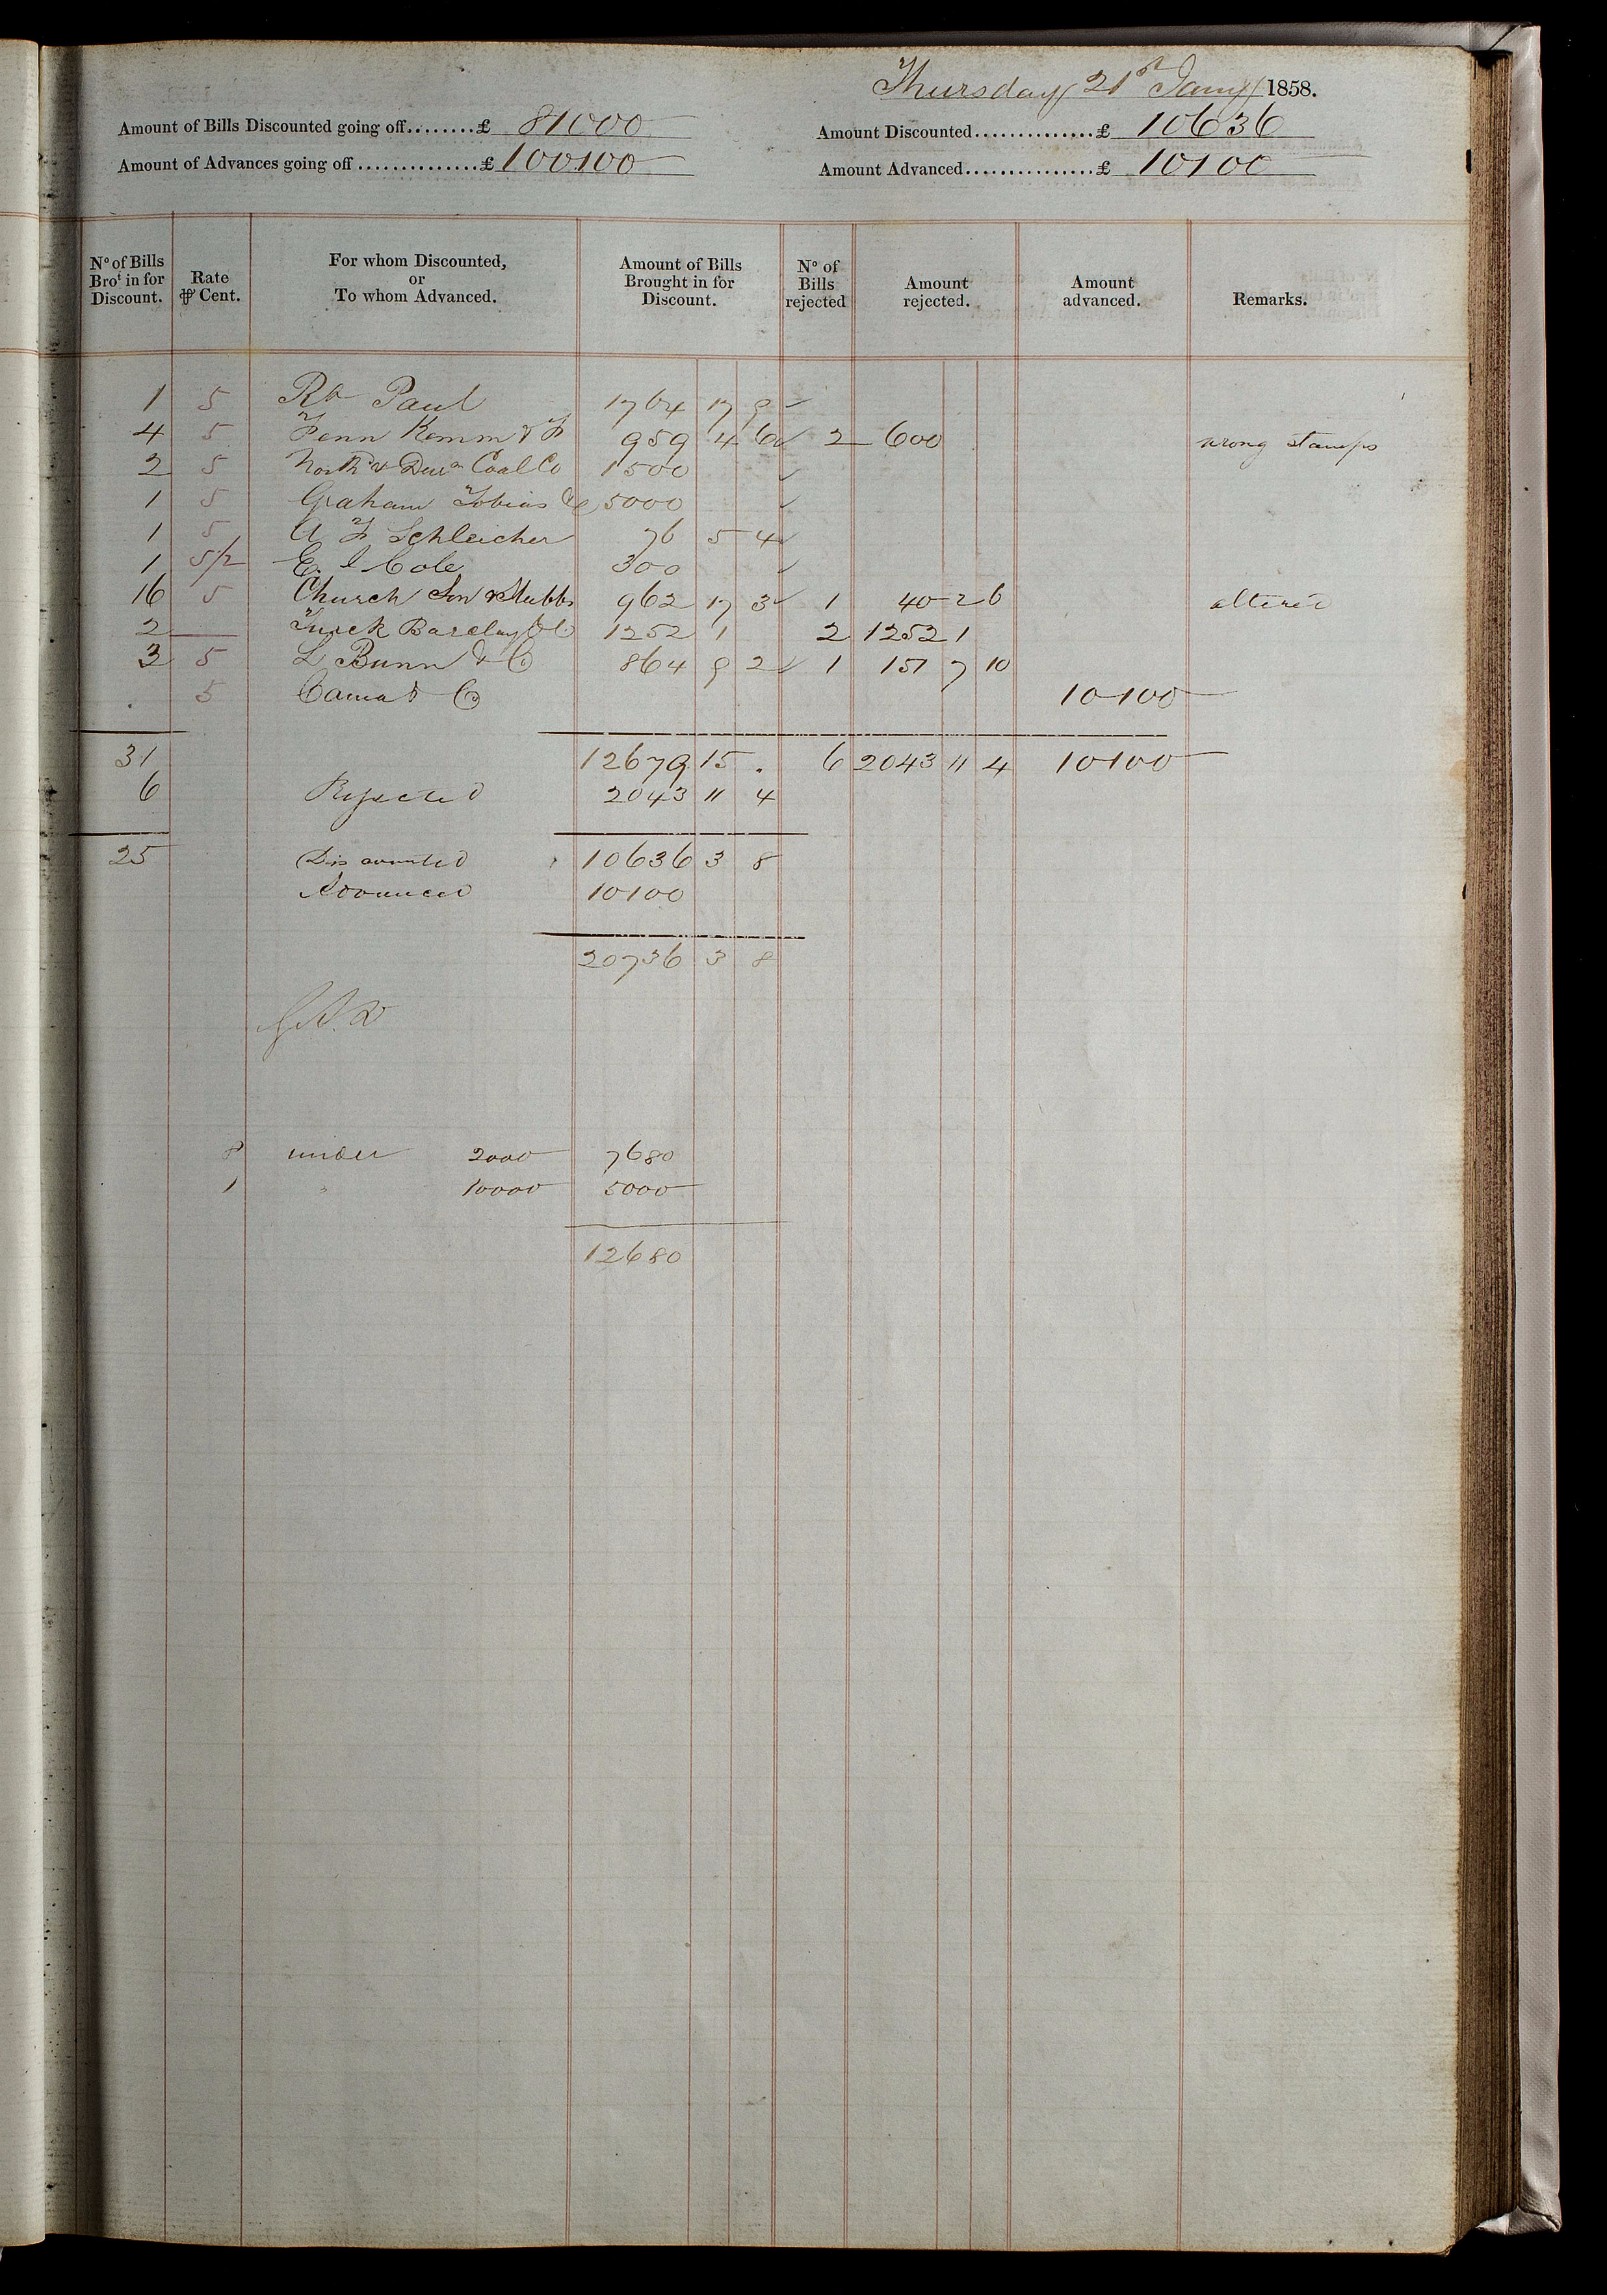 Thursday 21st Jany 1858.
Amount of Bills Discounted going off........£ 81000
Amount Discounted..............£ 10636
Amount of Advances going off..............£ 100100
Amount Advanced...............£ 10100
No of Bills Brot in for Discount. Rate ⅌ Cent. For whom Discounted, or To whom Advanced. Amount of Bills Brought in for Discount. No of Bills rejected Amount rejected. Amount advanced. Remarks.
1 5 Rt Paul 1764 17 9
4 5 Fenn Kemm & F 959 4 6 2 600 wrong stamps
2 5 North & Dur Coal Co 1500
1 5 Graham Tobias & 5000
1 5 A F Schleicher 76 5 4
1 5/2 E Cole 300
16 5 Church Son & Stubbs 962 17 3 1 40 2 6 altered
2 — Barclay & Co 1252 1 2 1252 1
3 5 L Bunn & Co 864 9 2 1 151 7 10
5 Cama & Co 10100
31 12679 15 . 6 2043 11 4 10100
6 Rejected 2043 11 4
25 Discounted 10636 3 8
Advanced 10100
20736 3 8
8 under 2000 7680
1 " 10000 5000
12680